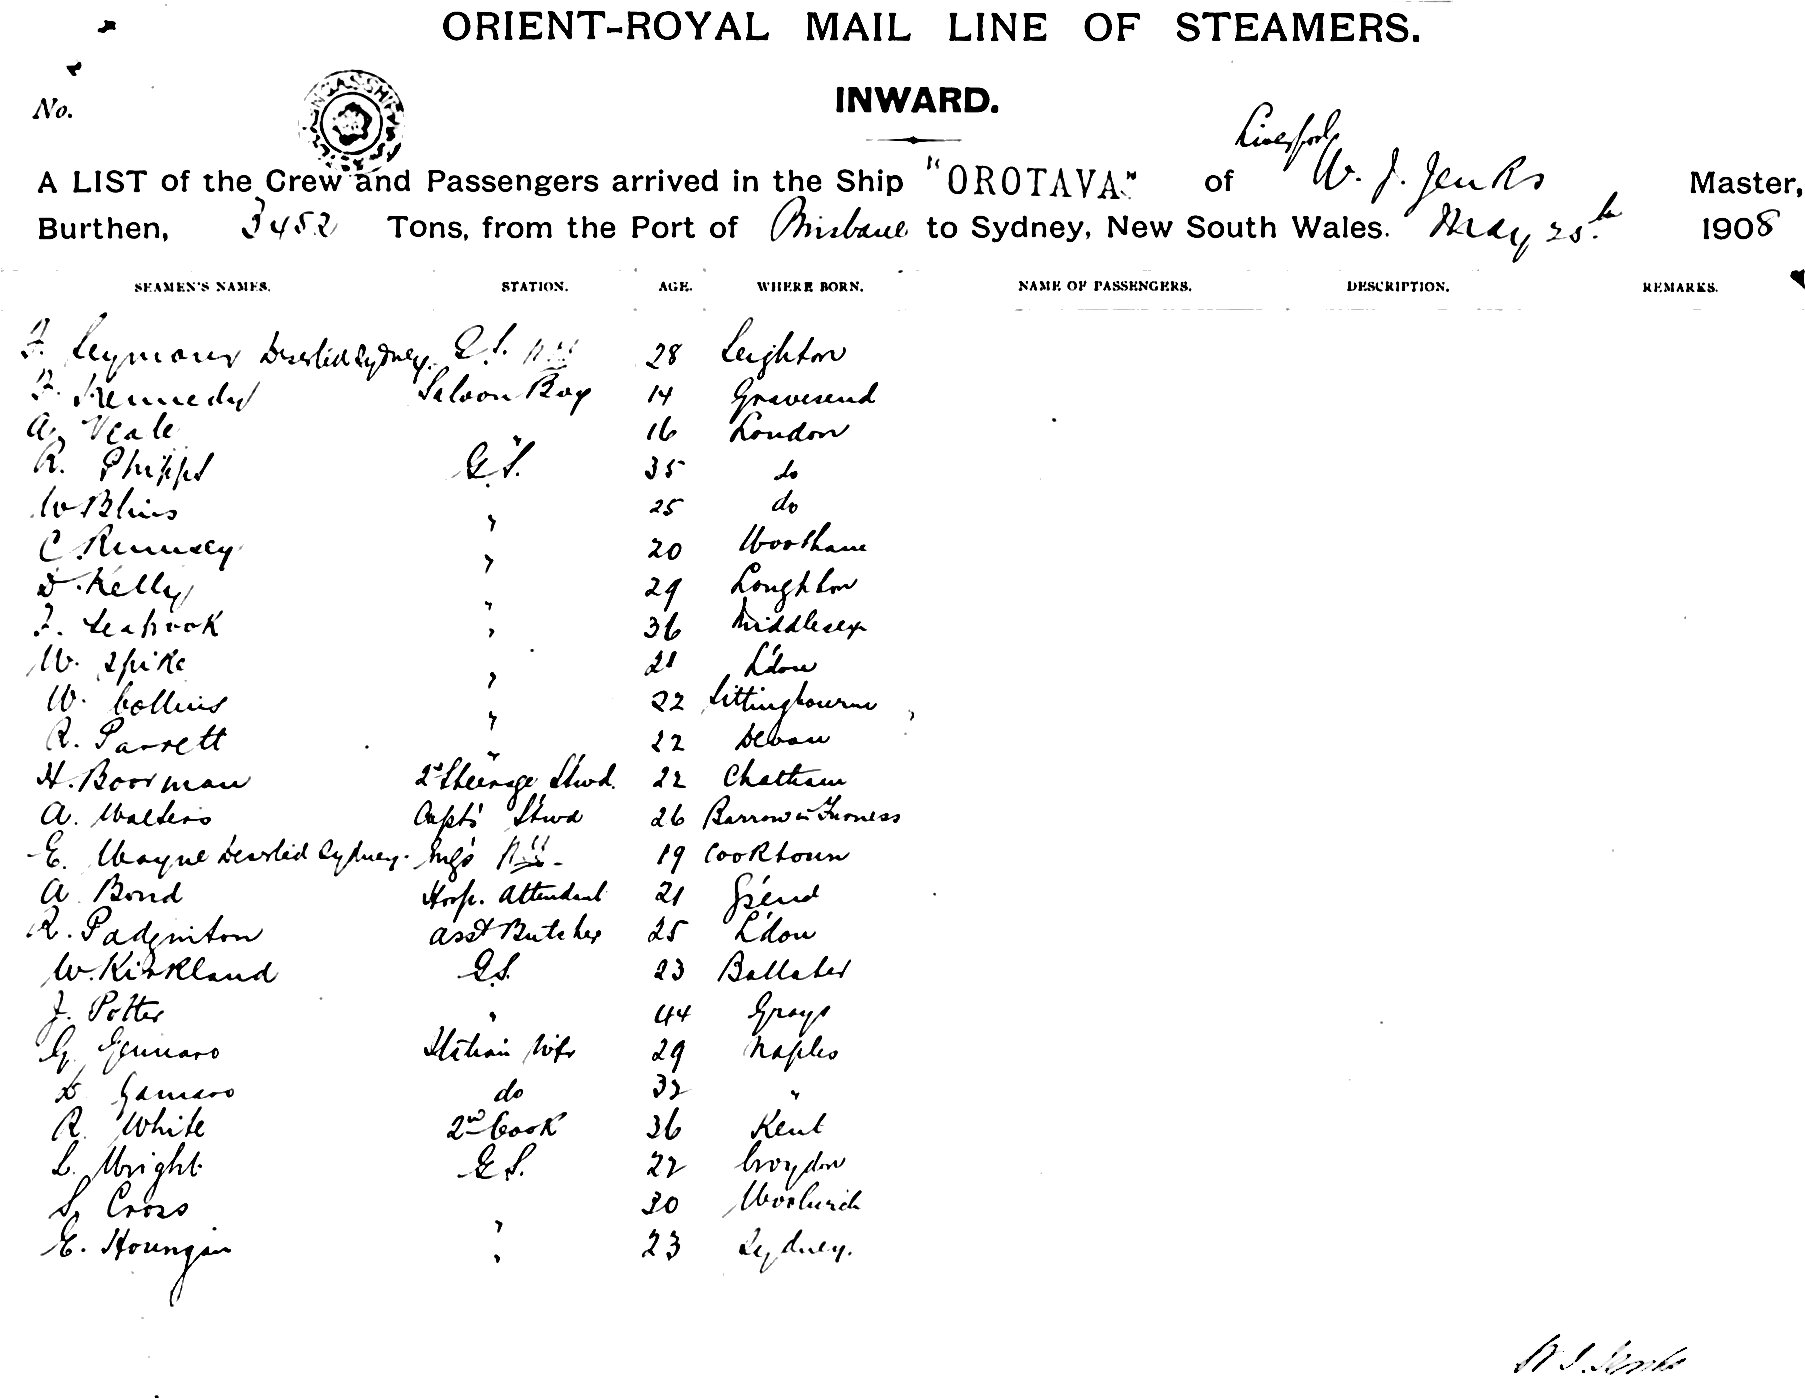 ORIENT-ROYAL MAIL LINE OF STEAMERS.
INWARD.
No.
Liverpool
A LIST of the Crew and Passengers arrived in the Ship "OROTAVA" of W. J. Jenks Master,
Burthen, 3452 Tons, from the Port of Brisbane to Sydney, New South Wales. May 25th 1908
SEAMEN'S NAMES. STATION. AGE. WHERE BORN. NAME OF PASSENGERS. DESCRIPTION. REMARKS.
F. Seymour Deserted Sydney. G.S. 28 Leighton
F. Kennedy Saloon Boy 14 Gravesend
A. Veale " 16 London
R. Phipps G.S. 35 do
W Blins " 25 do
C. Rumsey " 20
D. Kelly " 29 Loughton
F. Seabrook " 36 Middlesex
W. Spike " 21 L'don
W. Collins " 22 Sittingbourne
R. Parrett " 22 Devon
H. Boorman 2d Steerage Stwd. 22 Chatham
A. Walters Capt's Stwd 26 Barrow in Furness
E. Wayne Deserted Sydney. 19 Cooktown
A Bond Hosp. Attendant 21 G'send
R. Padginton Asst Butcher 25 L'don
W. Kirkland G.S. 23 Ballater
J. Potter " 44 Grays
G. Gennaro Italian 29 Naples
D do 32 "
R. White 2nd Cook 36 Kent
L. Wright G S. 22 Croydon
S. Cross " 30 Woolwich
E. " 23 Sydney.
W. J. Jenks